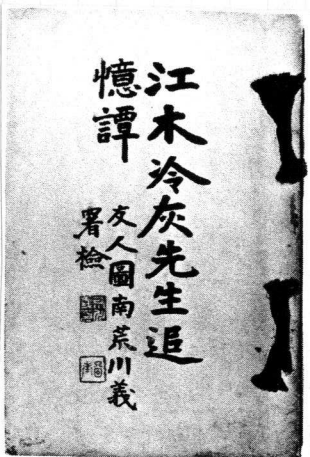 江木冷灰先生追
憶譚
友人圖南荒川義
署檢